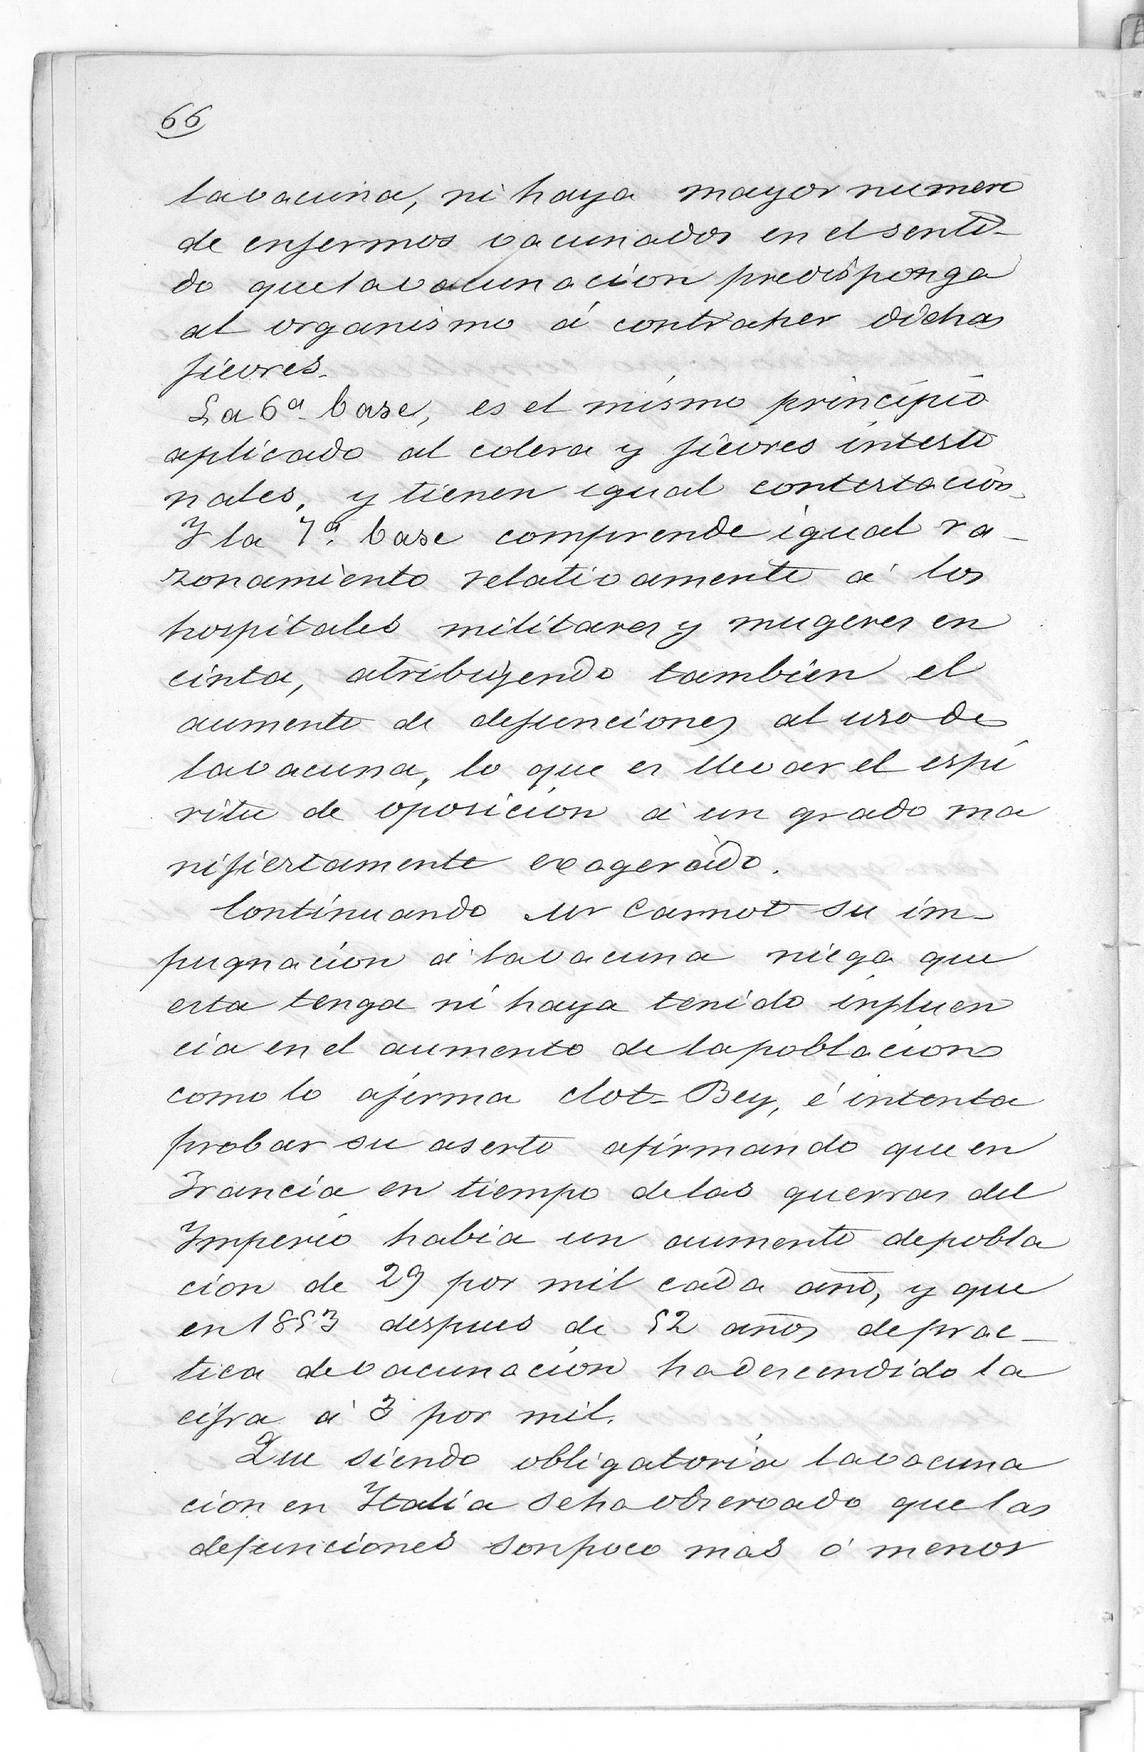 66
la vacuna, ni haya mayor numero
de enfermos vacunados en el senti-
do que la vacunacion predisponga
al organismo á contraher dichas
fievres.
La 6ª base, es el mismo principio
aplicado al colera y fievres intesti
nales, y tienen igual contestación.
Y la 7ª base comprende igual ra-
zonamiento relativamente á los
hospitales militares y mugeres en
cinta, atribuyendo tambien el
aumento de defunciones al uso de
la vacuna, lo que es llevar el espi
ritu de oposicion á un grado ma
nifiestamente exagerado.
Continuando Mr Carnot su im-
pugnacion á la vacuna niega que
esta tenga ni haya tenido influen
cia en el aumento de la poblacion
como lo afirma Clot-Bey, é intenta
probar su aserto afirmando que en
Francia en tiempo de las guerras del
Imperio habia un aumento de pobla
cion de 29 por mil cada año, y que
en 1853 despues de 52 años de prac-
tica de vacunacion ha descendido la
cifra á 3 por mil.
Que siendo obligatoria la vacuna
cion en Italia se ha observado que las
defunciones son poco mas ó menos